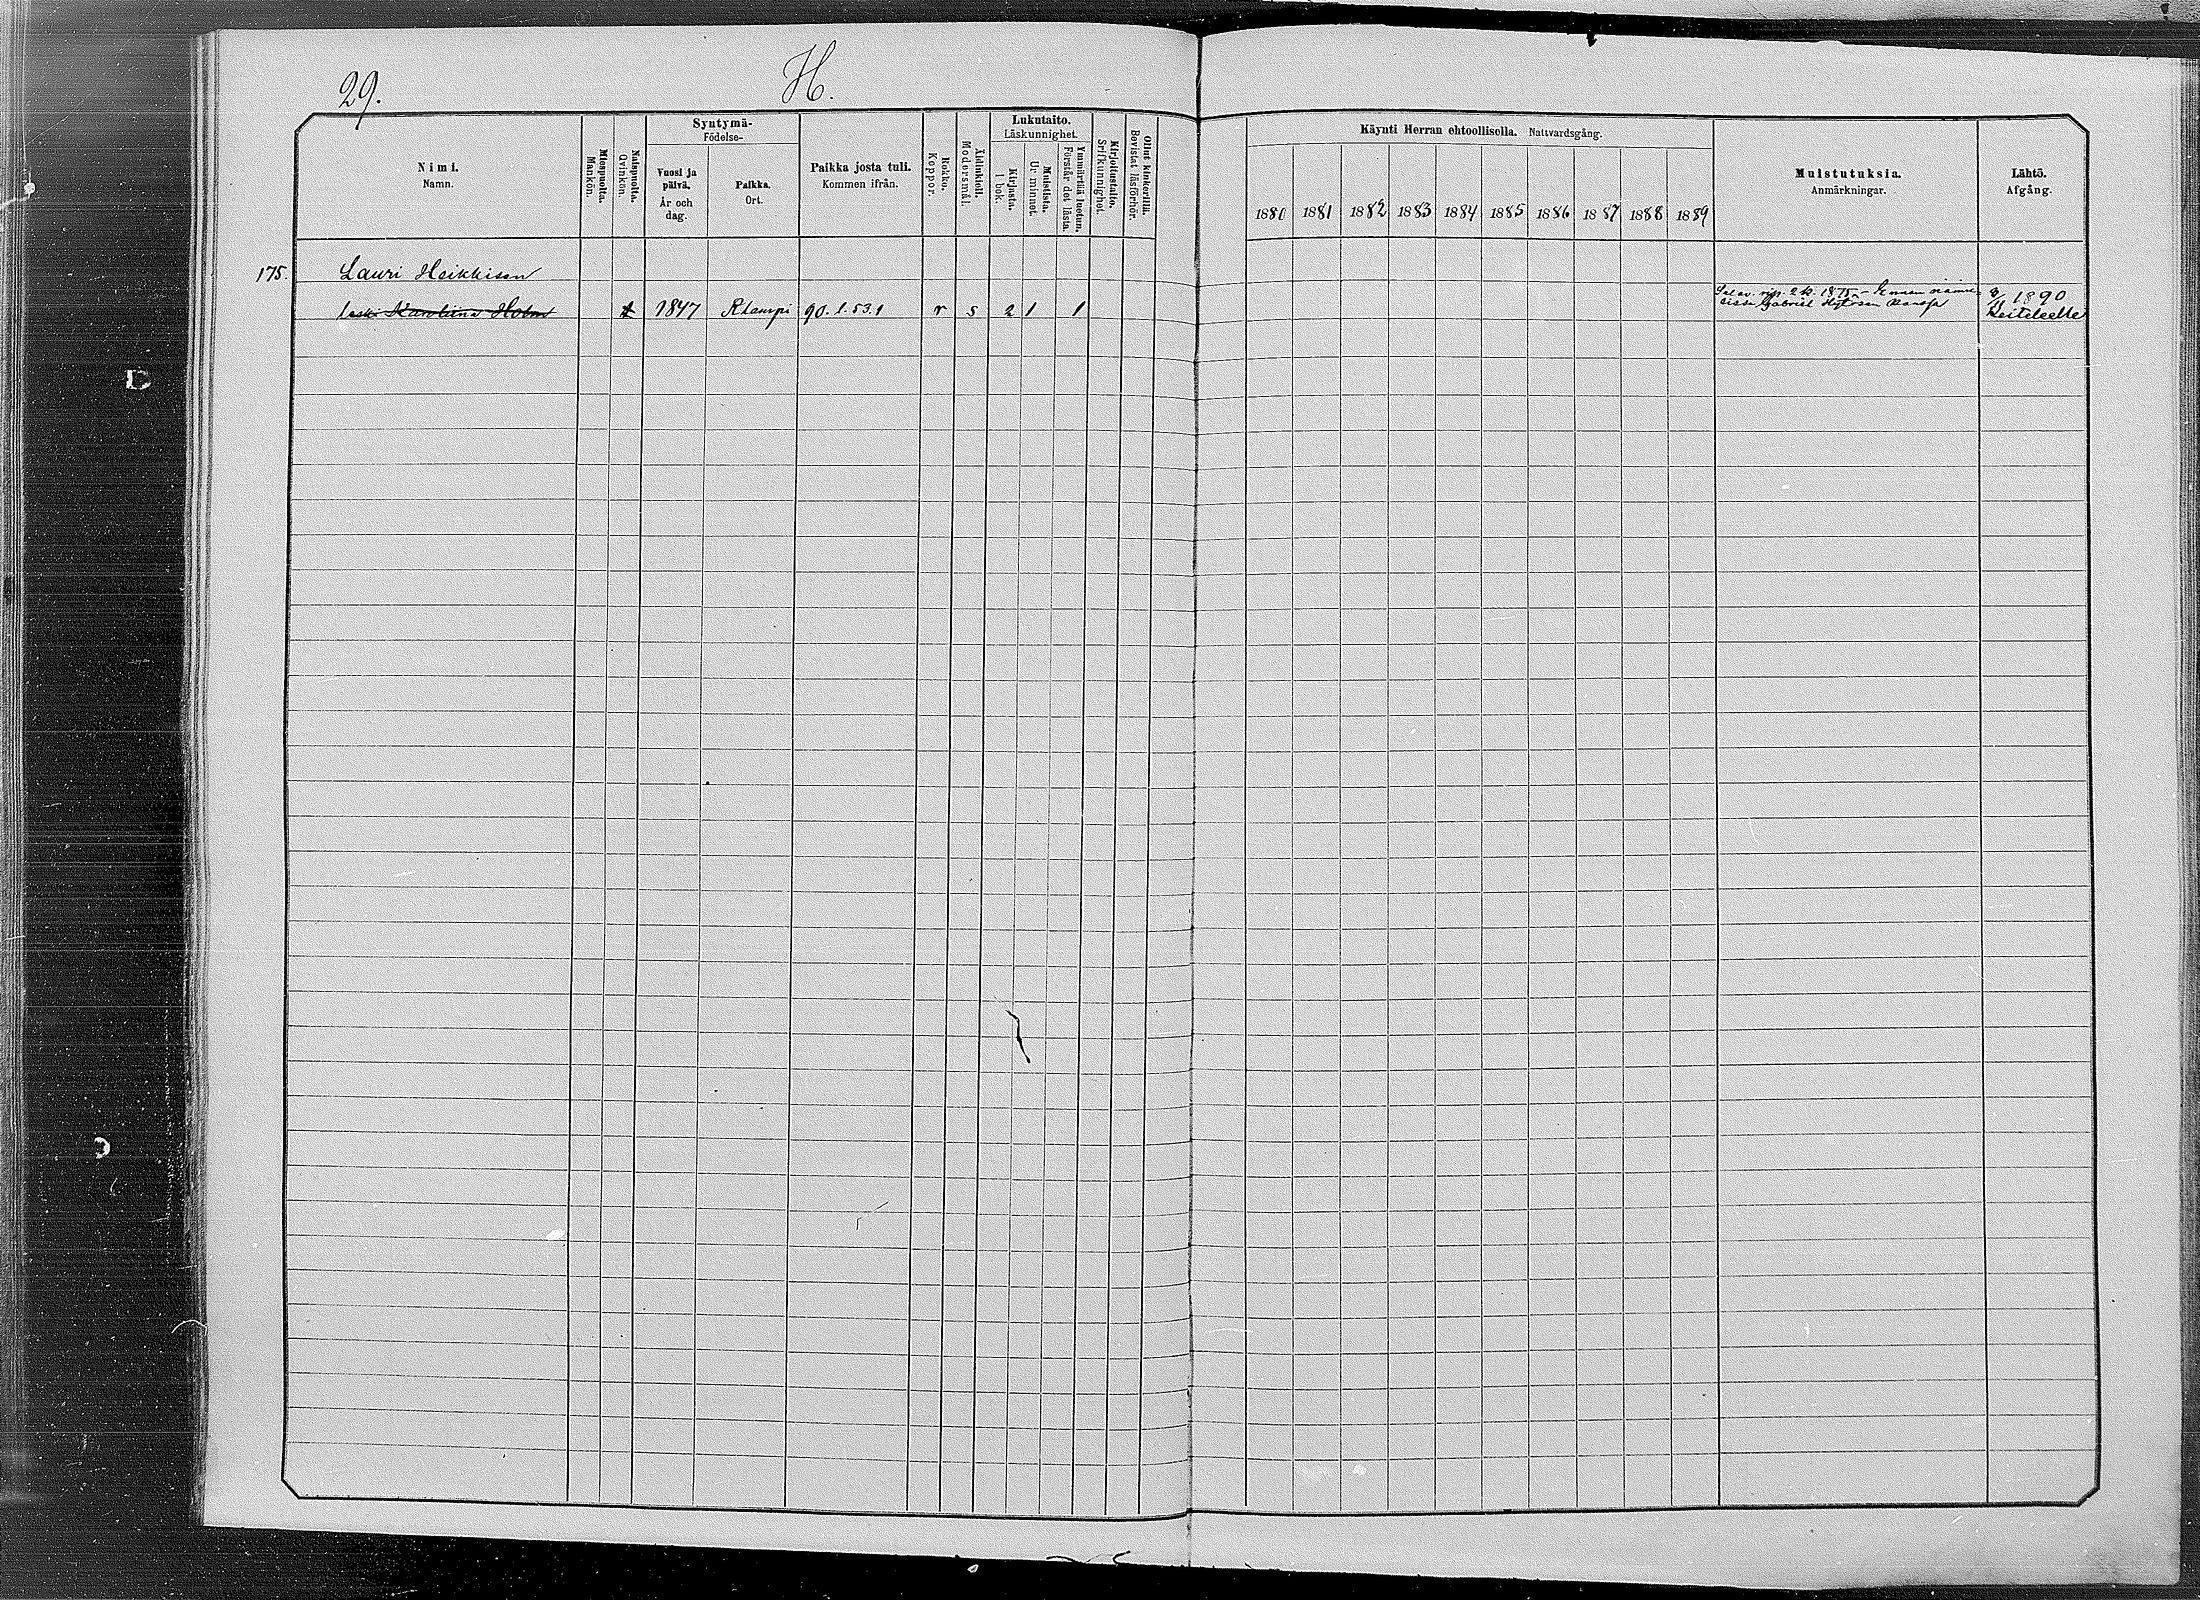 29.
H.
Nimi.
Namn.
Miespuolta.
Mankön.
Naispuolta.
Qvinkön.
Syntymä-
Födelse-
Vuosi ja
päivä.
År och
dag.
Paikka.
Ort.
Paikka josta tuli.
Kommen ifrån.
Rokko.
Koppor.
Äidinkieli.
Modersmål.
Lukutaito.
Läskunnighet.
Kirjasta.
I bok.
Muistista.
Ur minnet.
Ymmärtää luetun.
Förstår det lästa.
Kirjoitustaito.
Srifkunnighet.
Ollut kinkerillä.
Bevistat läsförhör.
Käynti Herran ehtoollisella. Nattvardsgång.
1880 1881 1882 1883 1884 1885 1886 1887 1888 1889
Muistutuksia.
Anmärkningar.
Lähtö.
Afgång.
175. Lauri Heikkisen
leski Karoliina Holm 1847 Rtampi 90.1.53.1 r s 2 1 1
rip. 2 k. 1875 - Ennen
Gabriel 1890
Keiteleelle